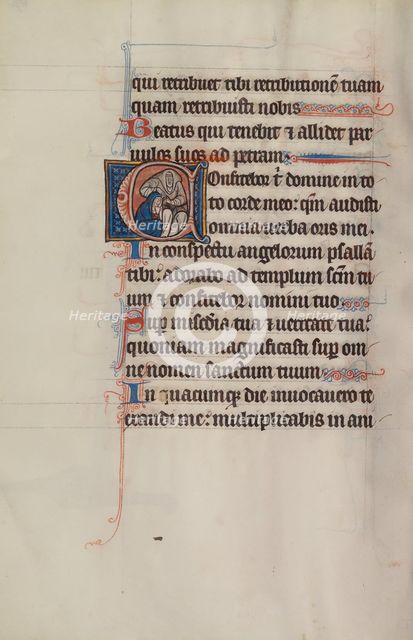 qui retribuet tibi retributionē tuam
quam retribuisti nobis
Beatus qui tenebit & allidet par
uulos suos ad petram.
Confitebor t̄ domine in to
to corde meo: qm̄ audisti
omnia uerba oris mei.
In conspectu angelorum psallā
tibi: adorabo ad templum scm̄ tu
um & confitebor nomini tuo.
Sup misc̄dia tua & ueritate tua:
quoniam magnificasti sup om
ne nomen sanctum tuum.
In quacumqꝫ die inuocauero te
exaudi me: multiplicabis in ani
Heritage Heritage
Heritage Heritage
Heritage Heritage